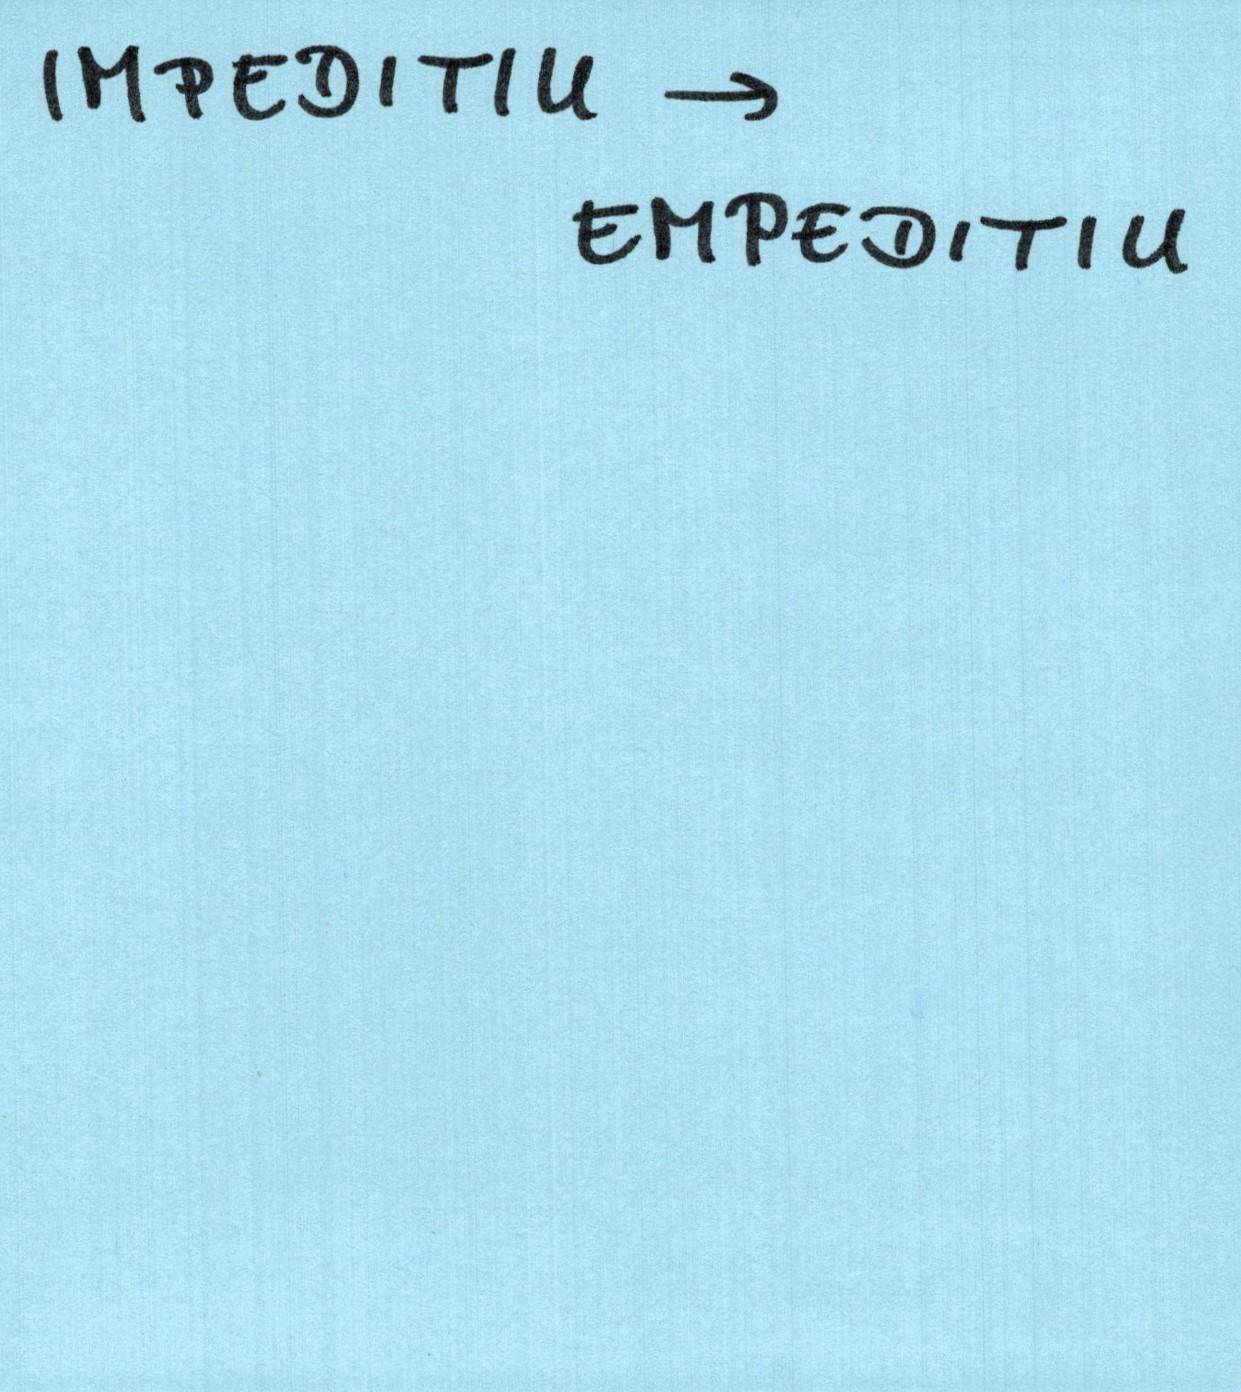 IMPEDITIU →
EMPEDITIU